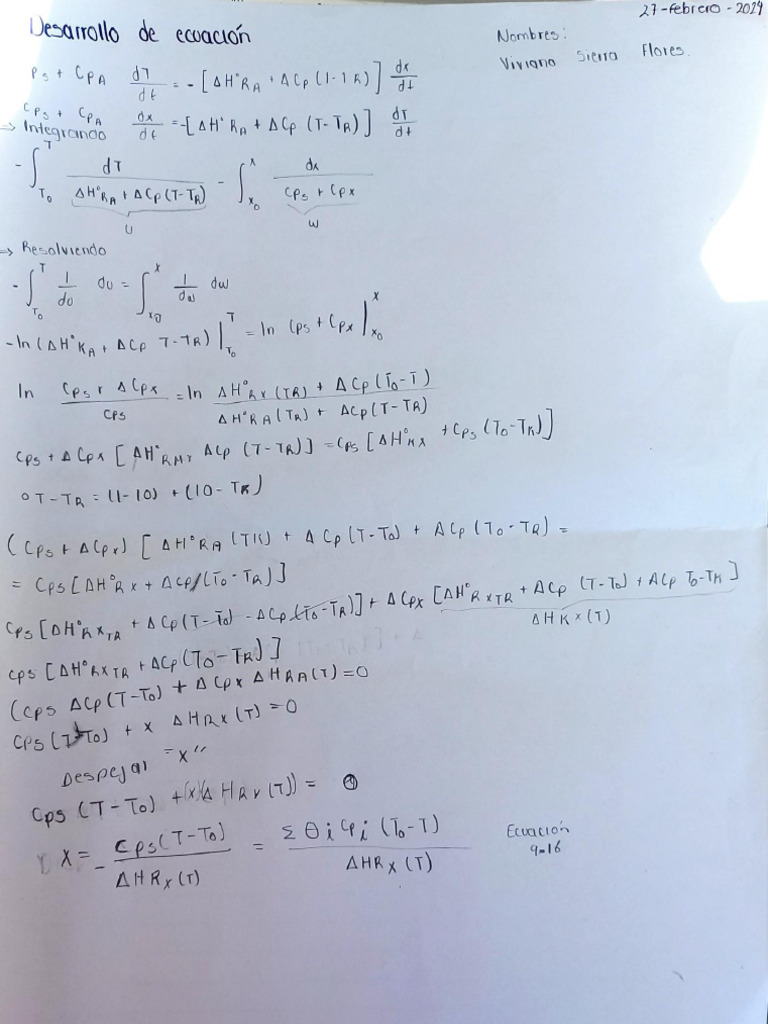 27-febrero-2024
Desarrollo de ecuación
Nombres:
Viviana Sierra Flores.
Ps + CpA dT/dt = - [ΔH°RA + ΔCp (1-1R)] dx/dt
Cps + CpA dx/dt = -[ΔH°RA + ΔCp (T-TR)] dT/dt
⇒ Integrando
- ∫_{T0}^{T} dT / (ΔH°RA + ΔCp (T-TR)) - ∫_{x0}^{x} dx / (Cps + Cpx)
U W
⇒ Resolviendo
- ∫_{T0}^{T} 1/du du = ∫_{x0}^{x} 1/dw dw
-ln (ΔH°KA + ΔCp T-TR) |_{T0}^{T} = ln Cps + Cpx |_{x0}^{x}
ln (Cps + ΔCpx) / Cps = ln (ΔH°Rx (TR) + ΔCp (T0-T)) / (ΔH°RA (TR) + ΔCp (T-TR))
Cps + ΔCpx [ΔH°RM+ ΔCp (T-TR)] = Cps [ΔH°Rx + Cps (T0-TR)]
° T-TR = (1-10) + (10-TR)
(Cps + ΔCpx) [ΔH°RA (TR) + ΔCp (T-T0) + ΔCp (T0-TR) =
= Cps [ΔH°Rx + ΔCp (T0-TR)]
Cps [ΔH°RxTR + ΔCp (T-T0) - ΔCp (T0-TR)] + ΔCpx [ΔH°RxTR + ΔCp (T-T0) + ΔCp T0-TR]
ΔHRx (T)
Cps [ΔH°RxTR + ΔCp (T0-TR)]
(Cps ΔCp (T-T0) + ΔCpx ΔHRA (T) = 0
Cps (T-T0) + x ΔHRx (T) = 0
Despejar = x"
Cps (T-T0) + (x)(ΔHRx (T)) = 0
X = - Cps (T-T0) / ΔHRx (T) = Σ θi Cpi (T0-T) / ΔHRx (T)
Ecuación
9-16